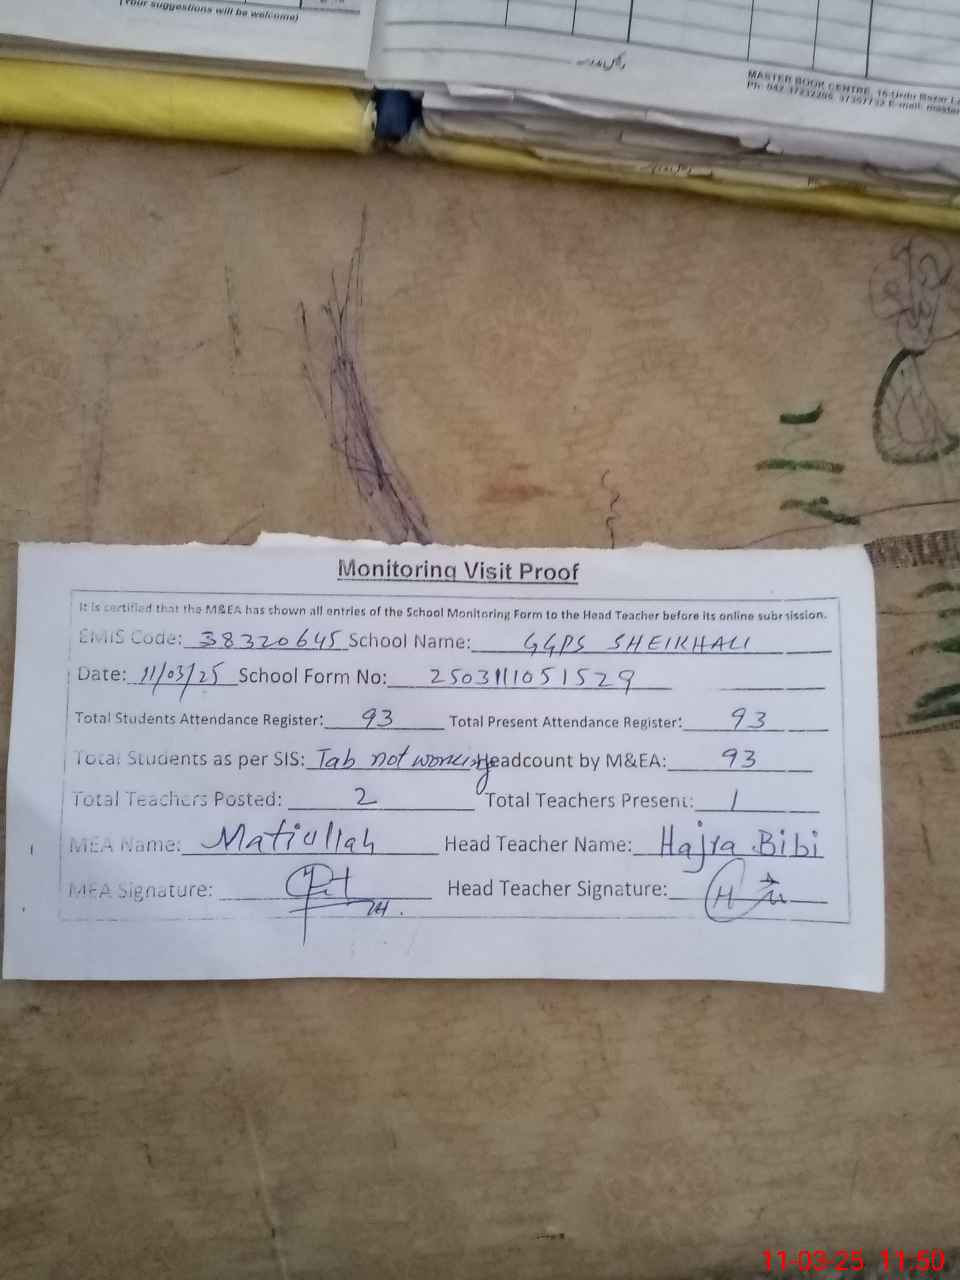 (Your suggestions will be welcome)
MASTER BOOK CENTRE, 16-Urdu Bazar
Monitoring Visit Proof
It is certified that the M&EA has shown all entries of the School Monitoring Form to the Head Teacher before its online submission.
EMIS Code: 38320645 School Name: GGPS SHEIKHALI
Date: 11/03/25 School Form No: 2503111051529
Total Students Attendance Register: 93 Total Present Attendance Register: 93
Total Students as per SIS: Tab not working Headcount by M&EA: 93
Total Teachers Posted: 2 Total Teachers Present: 1
MEA Name: Matiullah Head Teacher Name: Hajra Bibi
MEA Signature: Head Teacher Signature:
11-03-25 11:50